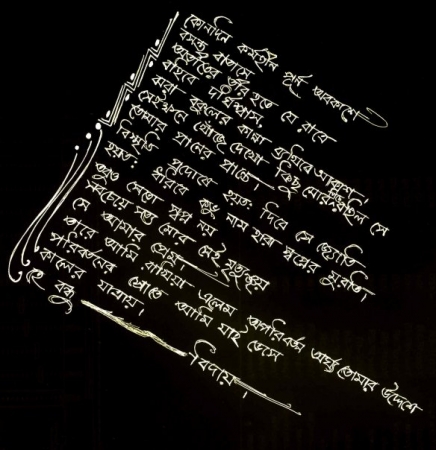 কোনদিন কর্মহীন পূর্ণ অবকাশে
বসন্ত বাতাসে
অতীতের তীর হতে যে রাত্রে
বহিবে দীর্ঘশ্বাস,
ঝরা বকুলের কান্না ব্যথিবে আকাশ,
সেইক্ষণে খুঁজে দেখো কিছু মোর পিছে রহিল সে
তোমার প্রাণের প্রান্তে।
বিস্মৃতি প্রদোষে হয়ত দিবে সে জ্যোতি
হয়ত: ধরিবে কভু নাম হারা স্বপ্নের মুরতি।
তবুও সেতো স্বপ্ন নয়
সবচেয়ে সত্য মোর সেই মৃত্যুঞ্জয়
সে আমার প্রেম।
তারে আমি রাখিয়া এলেম অপরিবর্তন অর্ঘ্য তোমার উদ্দেশে
পরিবর্তনের স্রোতে আমি যাই ভেসে
কালের যাত্রায়।
হে বন্ধু
বিদায়।